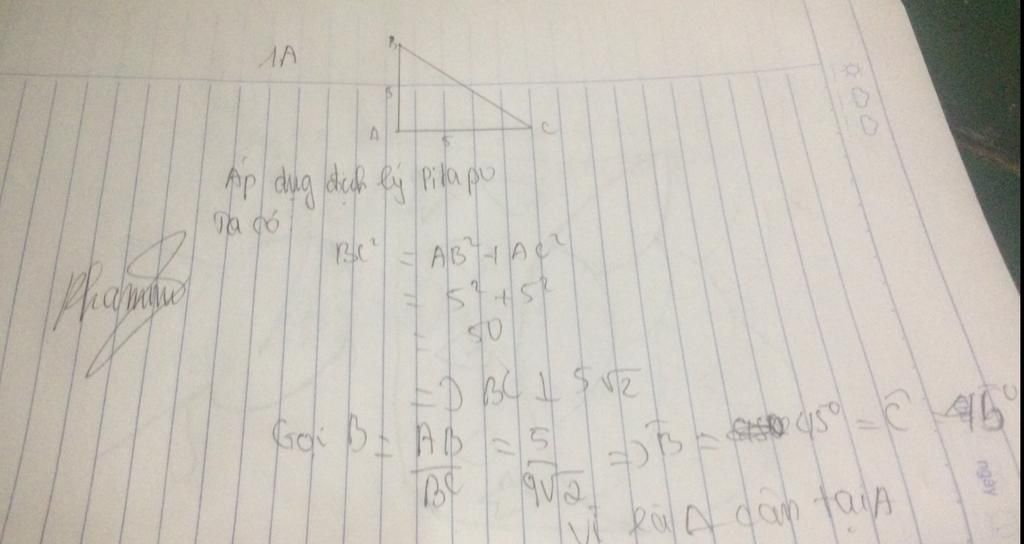 1A
B
5
A
5
C
Áp dụg định lý Pitapo
Ta có
BC² = AB² + AC²
= 5² + 5²
= 50
=> BC = 5√2
B = AB/BC = 5/9√2 => B̂ = 45° = Ĉ
Vì cân tại A
ngày